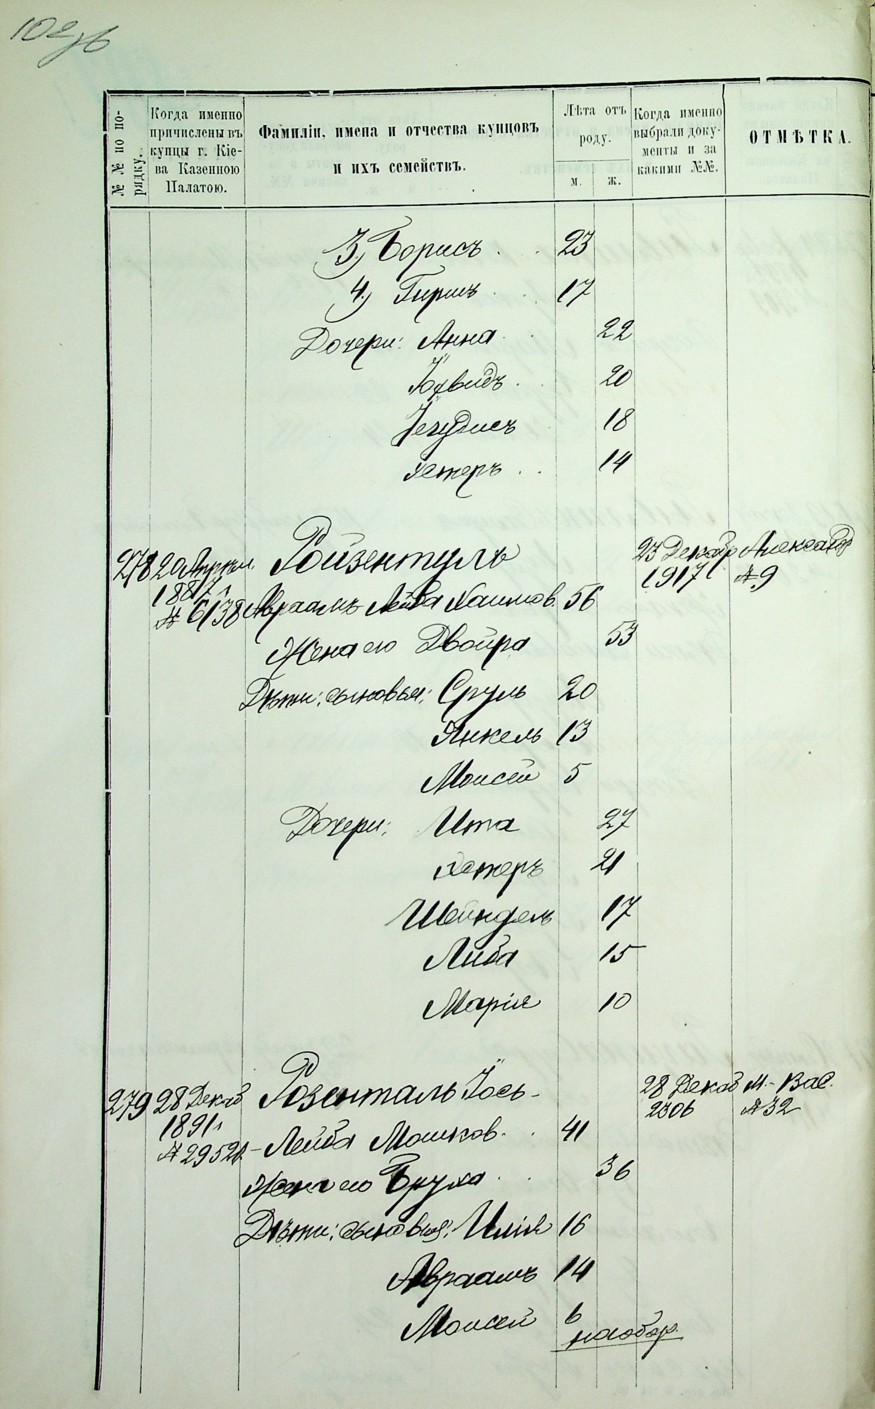 102
№№ по порядку.
Когда именно причислены въ купцы г. Кіева Казенною Палатою.
Фамиліи, имена и отчества купцовъ и ихъ семействъ.
Лѣта отъ роду.
м.
ж.
Когда именно выбрали документы и за какими №№.
ОТМѢТКА.
3) Борисъ . . 23
4) Гиршъ . . 17
Дочери: Анна . . 22
Іохвидъ . . 20
Іегудисъ 18
Хстеръ . . 14
278 20 Апрѣл Ройзентулъ 23 Декабр Александ
1887 г. 1917 № 9
№ 6138 Авраамъ Лейба Хаимов. 56
Жена его Двойра 53
Дѣти: сыновья: Сруль 20
Янкель 13
Моисей 5
Дочери: Ита 27
Хстеръ 21
Шейндель 17
Либа 15
Марія 10
279 28 Декаб Розенталь Іось- 28 Декаб М.-Вас.
1891 г. 2306 № 32
№ 29521 -Лейба Мошков. . 41
Жена его Бруха . . 36
Дѣти: сыновья: Илія 16
Авраамъ 14
Моисей 6
наобор.